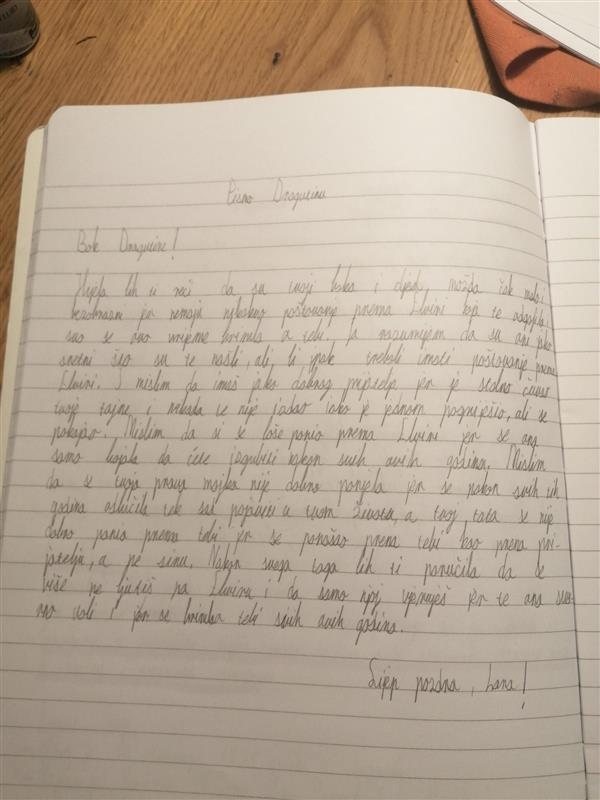 Pismo Dragutinu
Bok Dragutine!
Htjela bih ti reći da su tvoji baka i djed, možda čak malo i
bezobrazni jer nemaju nikakvog poštovanja prema Elviri koja te odgojila,
sve se ovo vrijeme brinula o tebi. Ja razumijem da su oni jako
sretni što su te našli, ali, bi ipak trebali imati poštovanje prema
Elviri. I mislim da imaš jako dobrog prijatelja jer je stalno čuvao
tvoje tajne i nikada te nije izdao iako je jednom pogriješio, ali se
pokajao. Mislim da si se loše ponio prema Elviri jer se ona
samo bojala da ćete izgubiti nakon svih ovih godina. Mislim
da se tvoja prava majka nije dobro ponijela jer se nakon svih tih
godina odlučila tek sad pojaviti u tvom životu, a tvoj tata se nije
dobro ponio prema tebi jer se ponašao prema tebi kao prema pri-
jatelju, a ne sinu. Nakon svega toga bih ti poručila da se
više ne ljutiš na Elviru i da samo njoj vjeruješ jer te ona
voli i jer se brinula tebi svih ovih godina.
Lijep pozdrav, Lana!